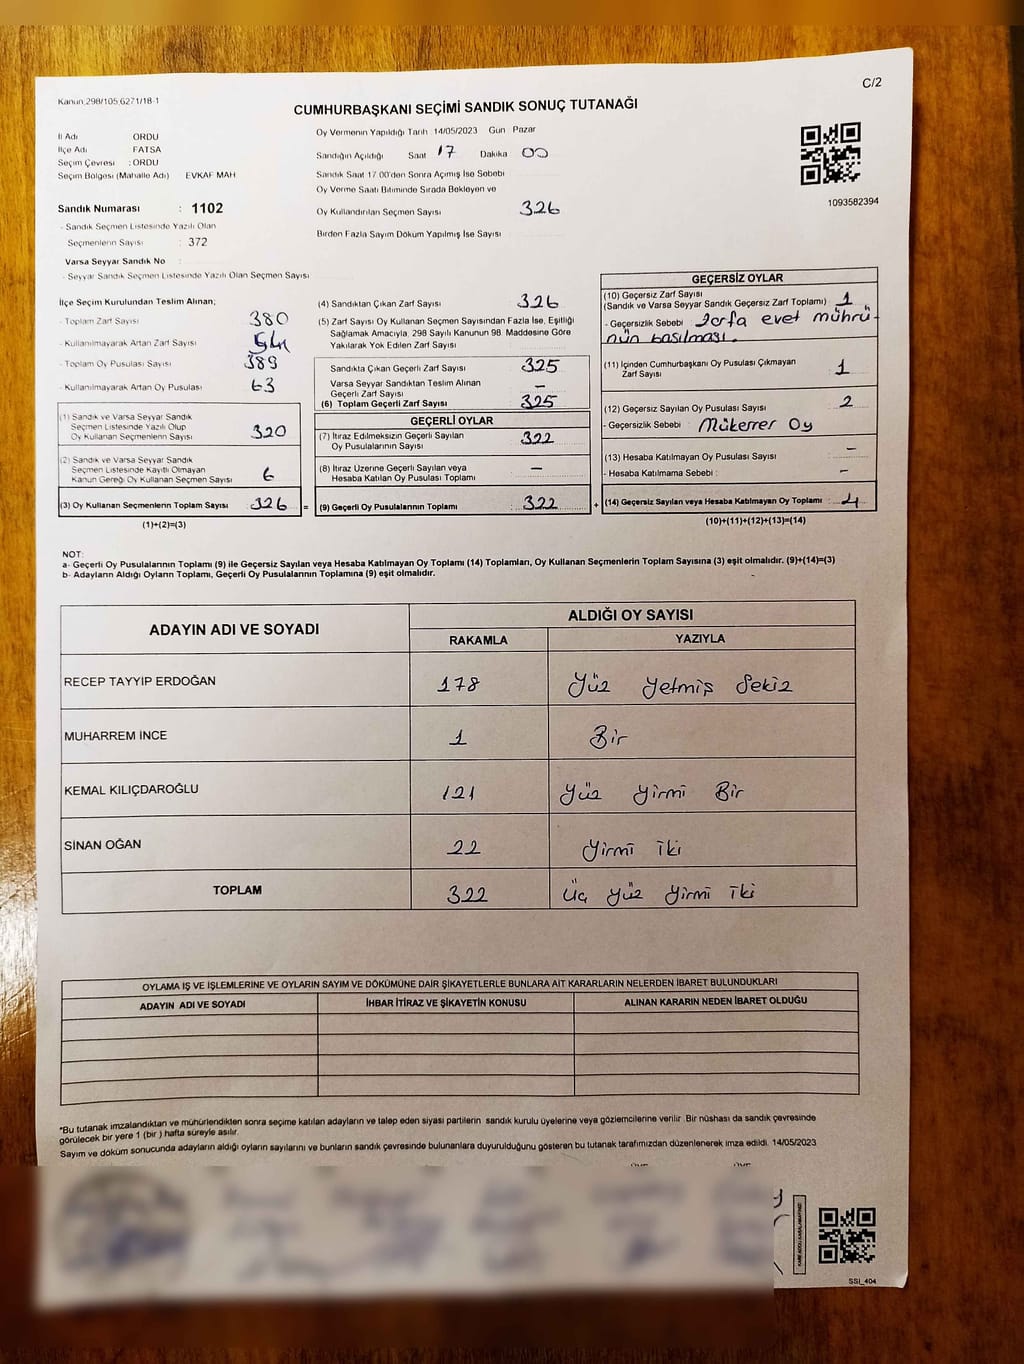 Kanun:298/105,6271/18-1
C/2
CUMHURBAŞKANI SEÇİMİ SANDIK SONUÇ TUTANAĞI
İl Adı ORDU
İlçe Adı FATSA
Seçim Çevresi : ORDU
Seçim Bölgesi (Mahalle Adı) EVKAF MAH
Sandık Numarası : 1102
- Sandık Seçmen Listesinde Yazılı Olan
Seçmenlerin Sayısı : 372
Varsa Seyyar Sandık No :
- Seyyar Sandık Seçmen Listesinde Yazılı Olan Seçmen Sayısı
Oy Vermenin Yapıldığı Tarih 14/05/2023 Gün Pazar
Sandığın Açıldığı Saat 17 Dakika 00
Sandık Saat 17.00'den Sonra Açımış İse Sebebi
Oy Verme Saati Bitiminde Sırada Bekleyen ve
Oy Kullandırılan Seçmen Sayısı 326
Birden Fazla Sayım Döküm Yapılmış İse Sayısı
1093582394
İlçe Seçim Kurulundan Teslim Alınan;
- Toplam Zarf Sayısı 380
- Kullanılmayarak Artan Zarf Sayısı
- Toplam Oy Pusulası Sayısı 389
- Kullanılmayarak Artan Oy Pusulası 63
(1) Sandık ve Varsa Seyyar Sandık
Seçmen Listesinde Yazılı Olup
Oy Kullanan Seçmenlerin Sayısı 320
(2) Sandık ve Varsa Seyyar Sandık
Seçmen Listesinde Kayıtlı Olmayan
Kanun Gereği Oy Kullanan Seçmen Sayısı 6
(3) Oy Kullanan Seçmenlerin Toplam Sayısı 326 =
(1)+(2)=(3)
(4) Sandıktan Çıkan Zarf Sayısı 326
(5) Zarf Sayısı Oy Kullanan Seçmen Sayısından Fazla İse, Eşitliği
Sağlamak Amacıyla, 298 Sayılı Kanunun 98. Maddesine Göre
Yakılarak Yok Edilen Zarf Sayısı
Sandıkta Çıkan Geçerli Zarf Sayısı 325
Varsa Seyyar Sandıktan Teslim Alınan
Geçerli Zarf Sayısı –
(6) Toplam Geçerli Zarf Sayısı 325
GEÇERLİ OYLAR
(7) İtiraz Edilmeksizin Geçerli Sayılan
Oy Pusulalarının Sayısı 322
(8) İtiraz Üzerine Geçerli Sayılan veya
Hesaba Katılan Oy Pusulası Toplamı –
(9) Geçerli Oy Pusulalarının Toplamı 322 +
GEÇERSİZ OYLAR
(10) Geçersiz Zarf Sayısı
(Sandık ve Varsa Seyyar Sandık Geçersiz Zarf Toplamı) 1
- Geçersizlik Sebebi : Zarfa evet mührü-
nün basılması.
(11) İçinden Cumhurbaşkanı Oy Pusulası Çıkmayan
Zarf Sayısı 1
(12) Geçersiz Sayılan Oy Pusulası Sayısı 2
- Geçersizlik Sebebi : Mükerrer Oy
(13) Hesaba Katılmayan Oy Pusulası Sayısı –
- Hesaba Katılmama Sebebi : –
(14) Geçersiz Sayılan veya Hesaba Katılmayan Oy Toplamı 4
(10)+(11)+(12)+(13)=(14)
NOT:
a- Geçerli Oy Pusulalarının Toplamı (9) ile Geçersiz Sayılan veya Hesaba Katılmayan Oy Toplamı (14) Toplamları, Oy Kullanan Seçmenlerin Toplam Sayısına (3) eşit olmalıdır. (9)+(14)=(3)
b- Adayların Aldığı Oyların Toplamı, Geçerli Oy Pusulalarının Toplamına (9) eşit olmalıdır.
ADAYIN ADI VE SOYADI ALDIĞI OY SAYISI
RAKAMLA YAZIYLA
RECEP TAYYIP ERDOĞAN 178 Yüz Yetmiş Sekiz
MUHARREM İNCE 1 Bir
KEMAL KILIÇDAROĞLU 121 Yüz Yirmi Bir
SİNAN OĞAN 22 Yirmi İki
TOPLAM 322 Üç Yüz Yirmi İki
OYLAMA İŞ VE İŞLEMLERİNE VE OYLARIN SAYIM VE DÖKÜMÜNE DAİR ŞİKAYETLERLE BUNLARA AİT KARARLARIN NELERDEN İBARET BULUNDUKLARI
ADAYIN ADI VE SOYADI İHBAR İTİRAZ VE ŞİKAYETİN KONUSU ALINAN KARARIN NEDEN İBARET OLDUĞU
*Bu tutanak imzalandıktan ve mühürlendikten sonra seçime katılan adayların ve talep eden siyasi partilerin sandık kurulu üyelerine veya gözlemcilerine verilir. Bir nüshası da sandık çevresinde
görülecek bir yere 1 (bir ) hafta süreyle asılır.
Sayım ve döküm sonucunda adayların aldığı oyların sayılarını ve bunların sandık çevresinde bulunanlara duyurulduğunu gösteren bu tutanak tarafımızdan düzenlenerek imza edildi. 14/05/2023
SSI_404